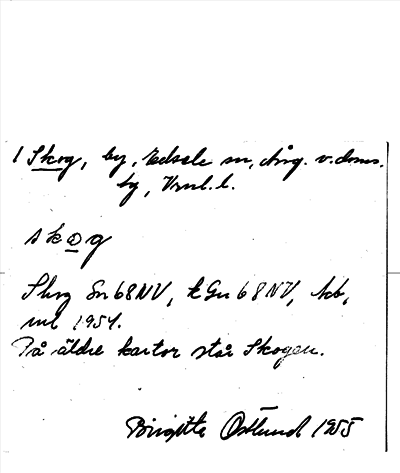 1 Skog, by, Edsele sn, Ång. v. doms.
by, Vrnl. l.
skog
Skog Sn 68 NV, k Gn 68 NV, kb,
ml 1954.
På äldre kartor står Skogen.
Birgitta Östlund 1955